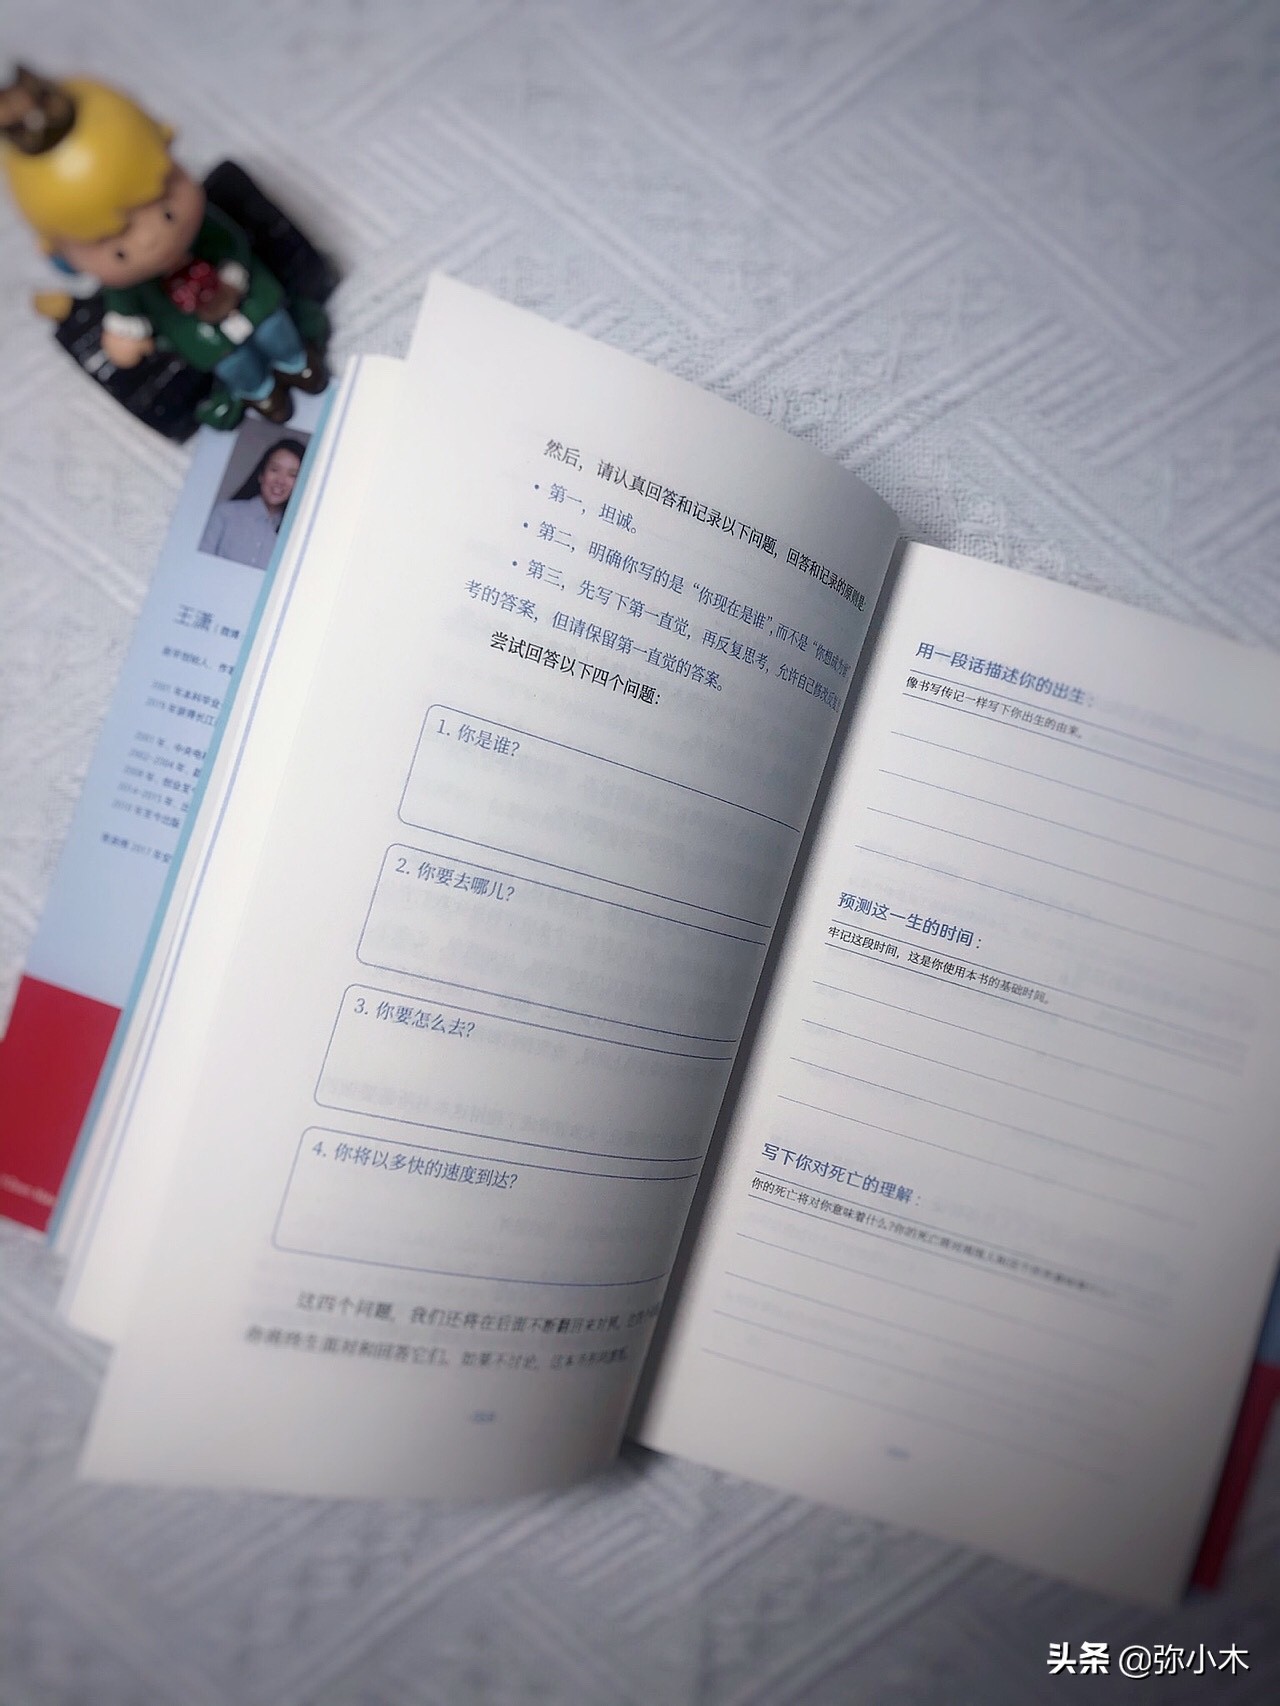 然后，请认真回答和记录以下问题，回答和记录的原则是
• 第一，坦诚。
• 第二，明确你写的是“你现在是谁”，而不是“你想成为谁”
• 第三，先写下第一直觉，再反复思考，允许自己修改
考的答案，但请保留第一直觉的答案。
尝试回答以下四个问题：
1. 你是谁？
2. 你要去哪儿？
3. 你要怎么去？
4. 你将以多快的速度到达？
这四个问题，我们还将在后面不断翻回来对照。
你将终生面对和回答它们。如果不讨论，
用一段话描述你的出生：
像书写传记一样写下你出生的由来。
预测这一生的时间：
牢记这段时间，这是你使用本书的基础时间。
写下你对死亡的理解：
你的死亡将对你意味着什么？你的死亡将对
王潇 | 微博
2001 年本科毕业
2001 年，中央电视
2002-2004 年，
2008 年，创业至
2014-2015 年，出
头条 @弥小木